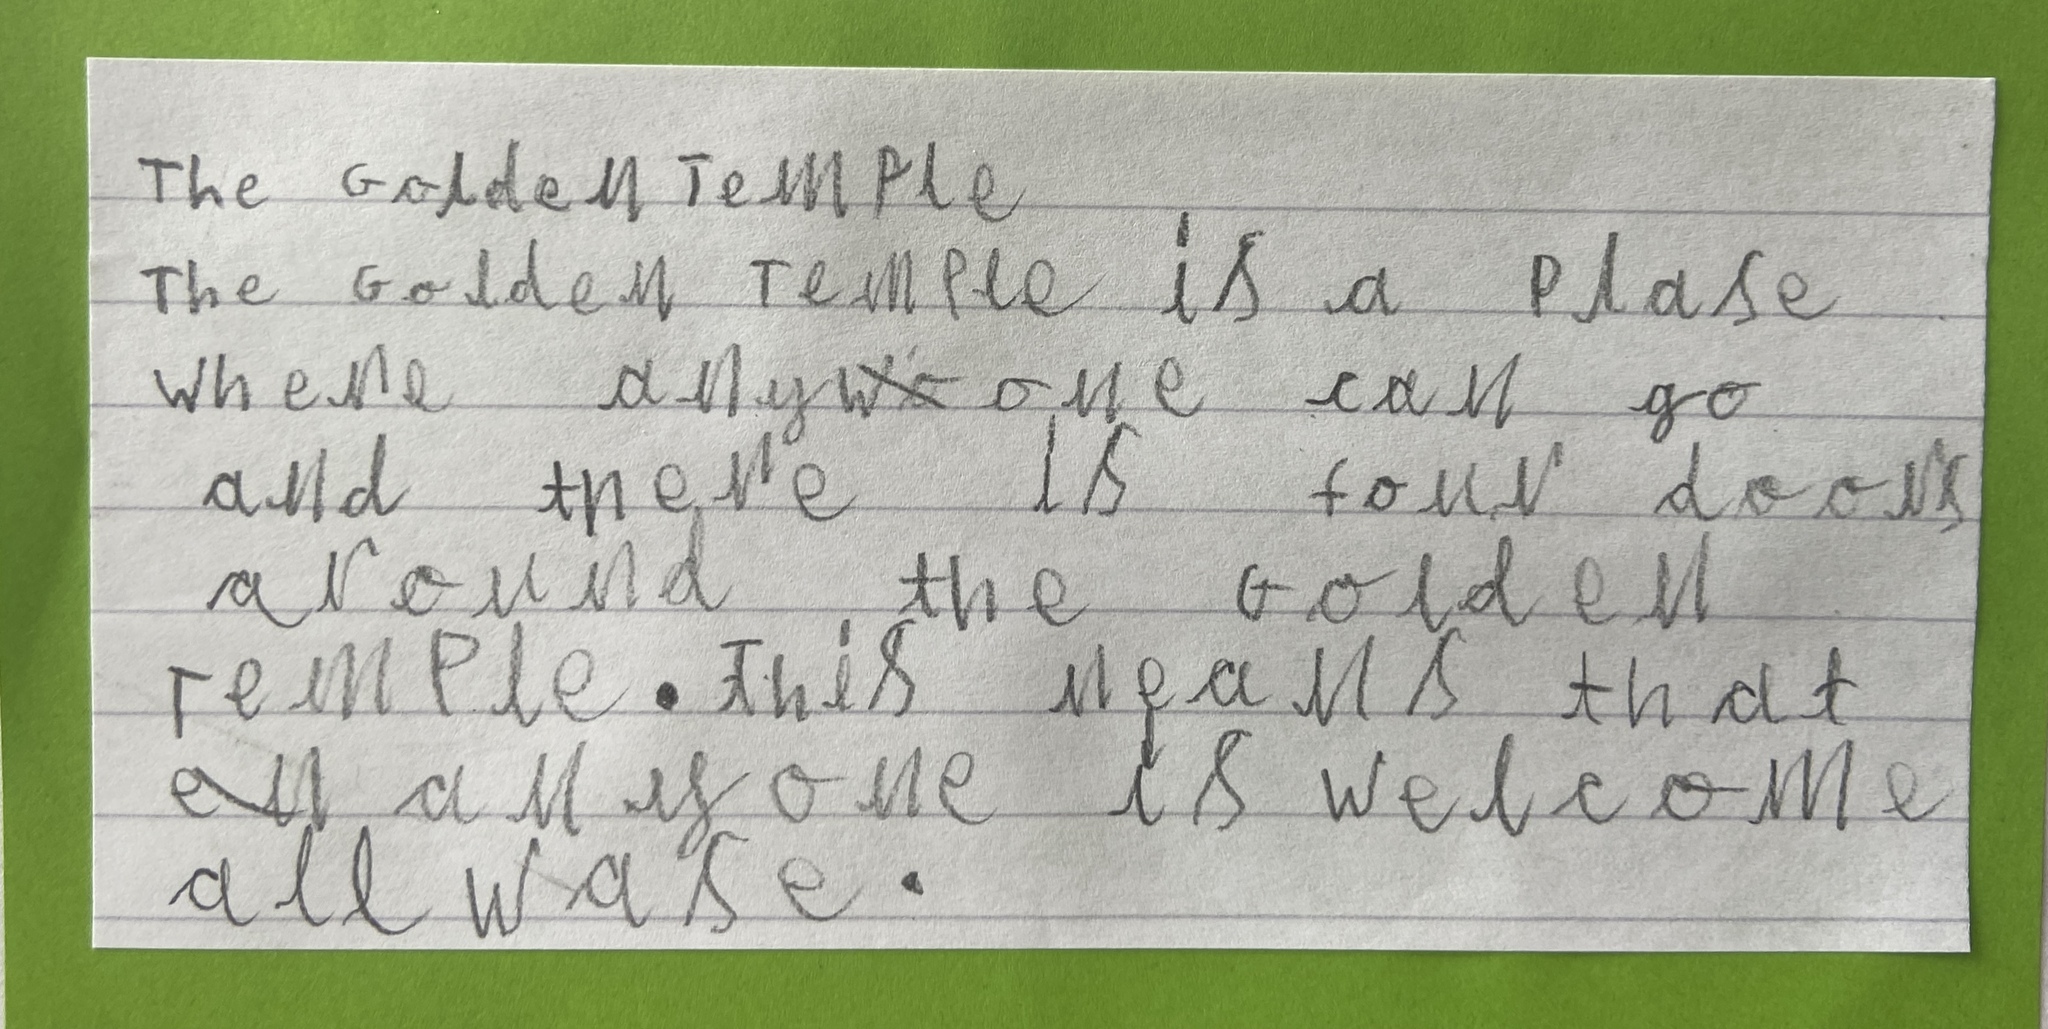 The Golden Temple
The Golden Temple is a Plase
where any one can go
and there is four doors
around the Golden
Temple. This neans that
en anyone is welcome
all wase.